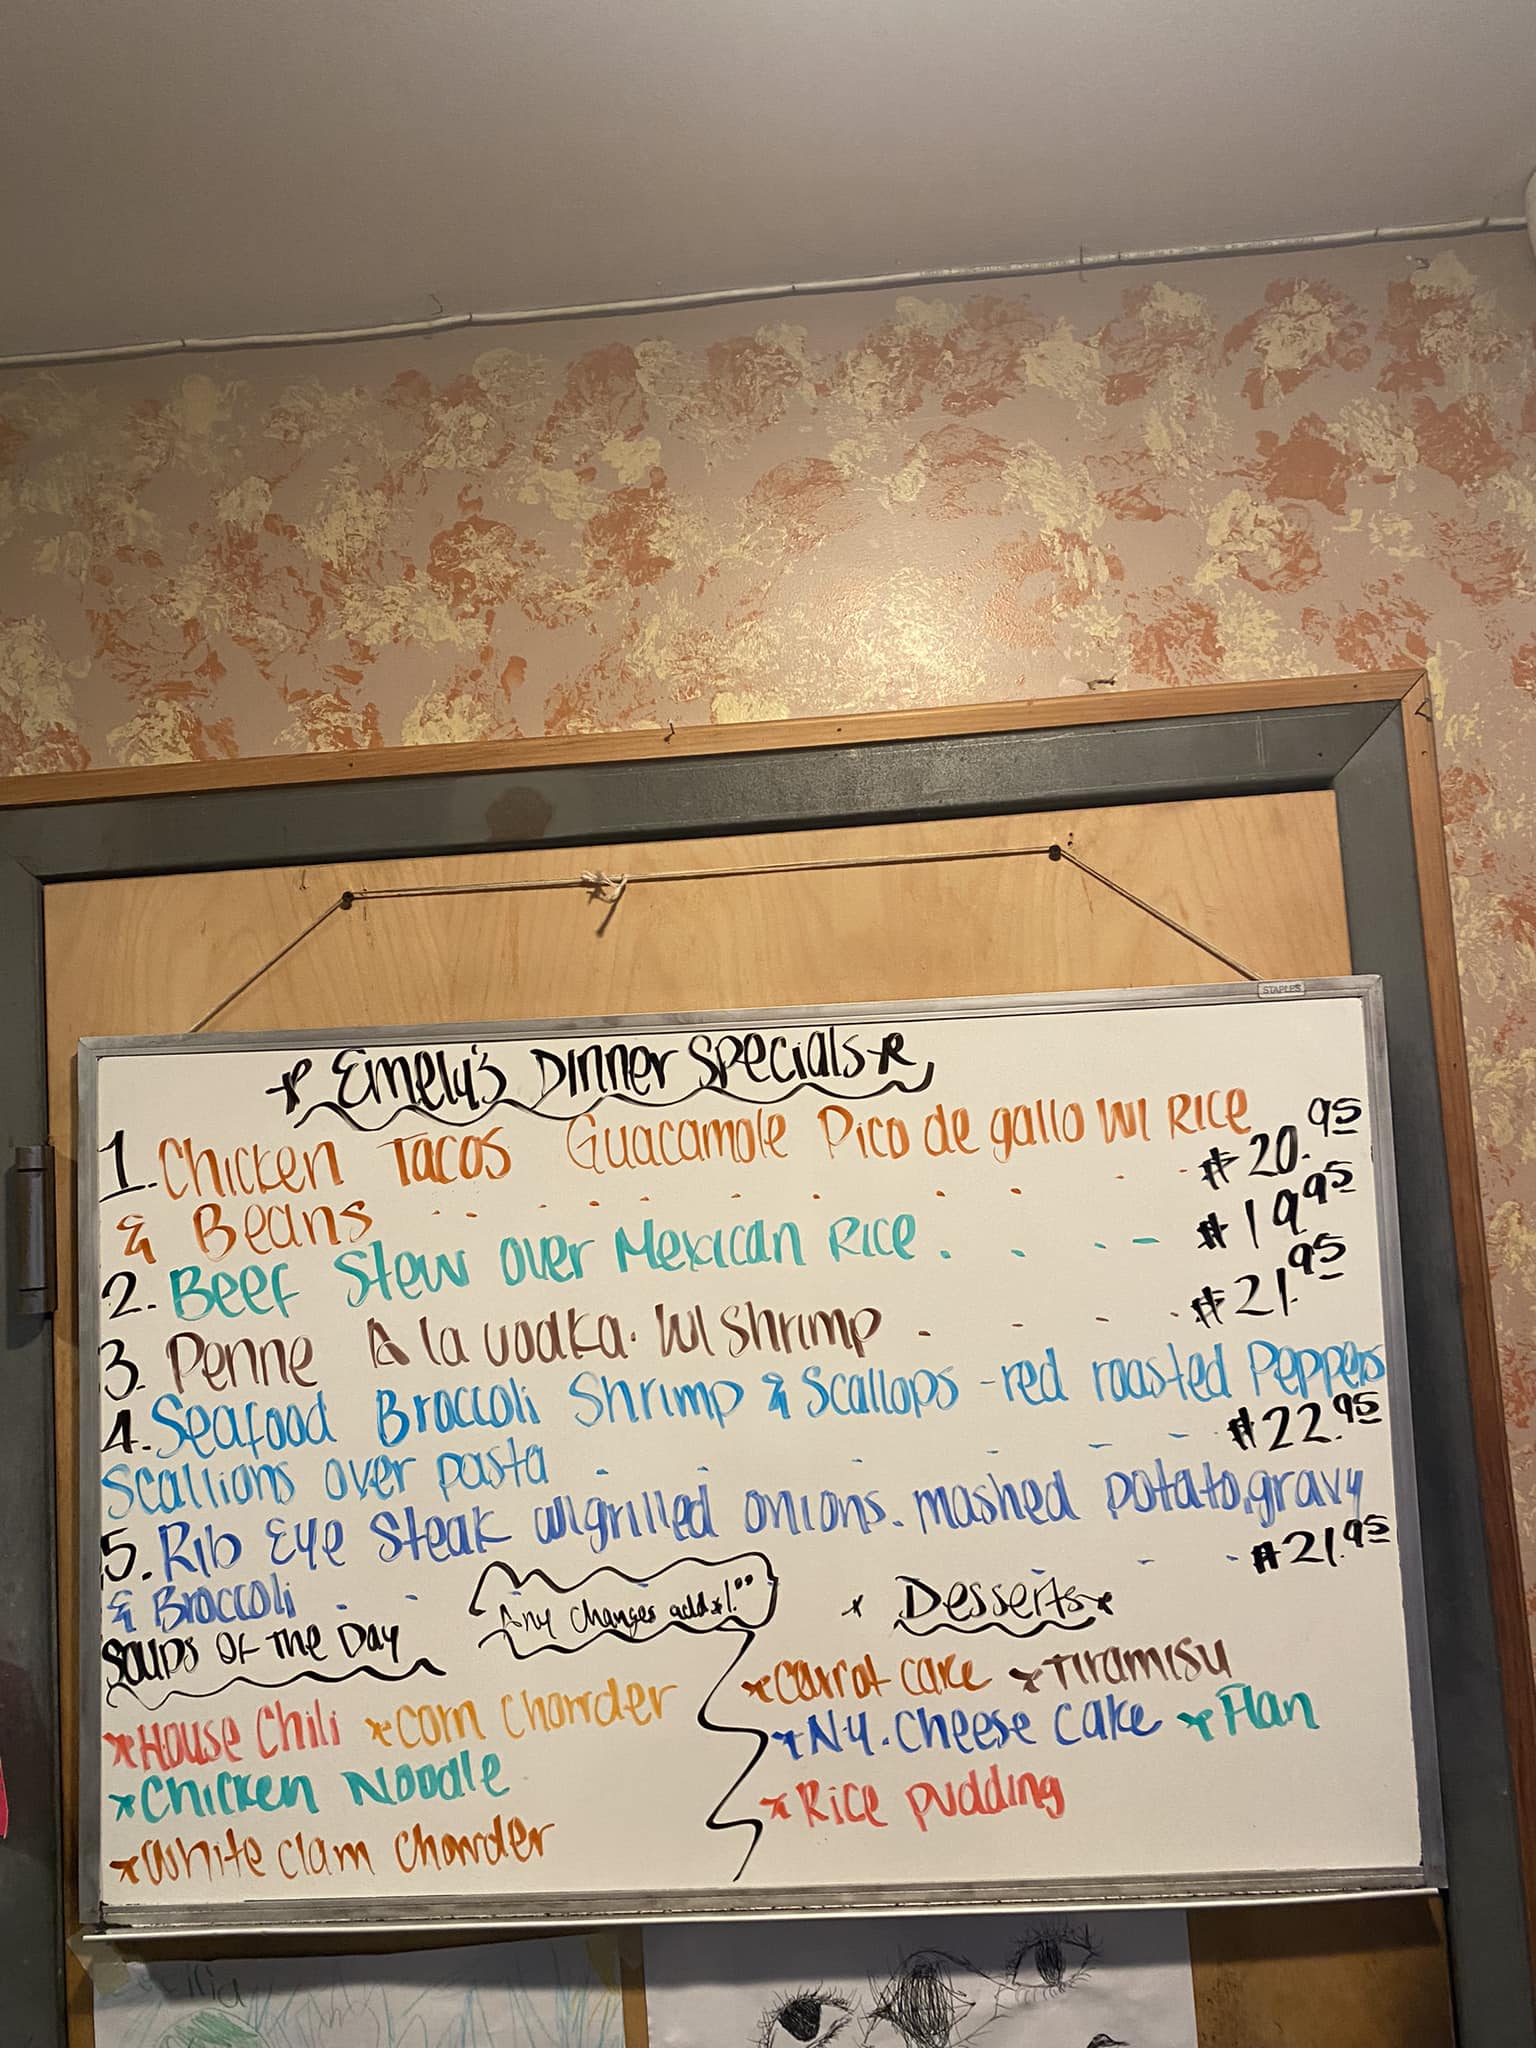 STAPLES
* Emely's Dinner Specials *
1. Chicken Tacos Guacamole Pico de gallo w/ Rice
& Beans . . . . . . . . . $20.95
2. Beef Stew over Mexican Rice . . . - $19.95
3. Penne A la vodka. w/ Shrimp . . . . $21.95
4. Seafood Broccoli Shrimp & Scallops - red roasted Peppers
Scallions over pasta . . . - - - $22.95
5. Rib Eye Steak w/grilled onions. mashed potato, gravy
& Broccoli . . - - $21.95
Any Changes add $1.00
Soups of the Day
*House Chili *Corn Chowder
*Chicken Noodle
*White clam chowder
* Desserts *
*Carrot cake *Tiramisu
*N.Y. Cheese Cake *Flan
*Rice pudding